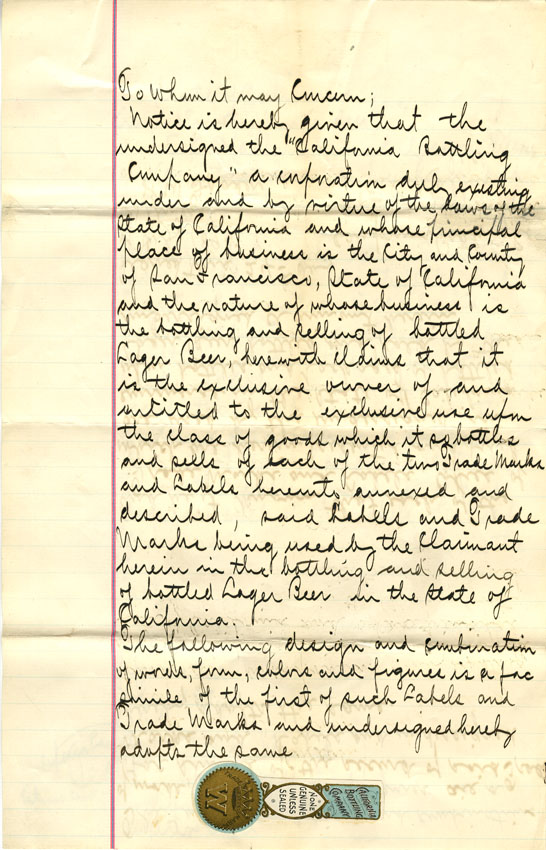 To Whom it may Concern;
Notice is hereby given that the
undersigned the "California Bottling
Company" a corporation duly existing
under and by virtue of the Laws of the
State of California and whose principal
place of business is the City and County
of San Francisco, State of California
and the nature of whose business is
the bottling and selling of bottled
Lager Beer, herewith claims that it
is the exclusive owner of and
entitled to the exclusive use upon
the class of goods which it so bottles
and sells of each of the two Trade Marks
and Labels hereunto annexed and
described, said Labels and Trade
Marks being used by the Claimant
herein in the bottling and selling
of bottled Lager Beer in the State of
California.
The following design and combination
of words, form, colors and figures is a fac
simile of the first of such Labels and
Trade Marks and undersigned hereby
adopts the same
W
NONE
GENUINE
UNLESS
SEALED
CALIFORNIA
BOTTLING
COMPANY